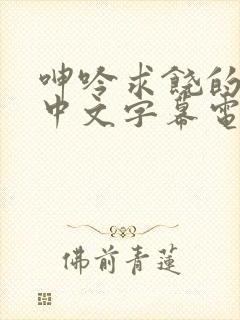 呻吟求饶的
中文字幕電
佛前青蓮